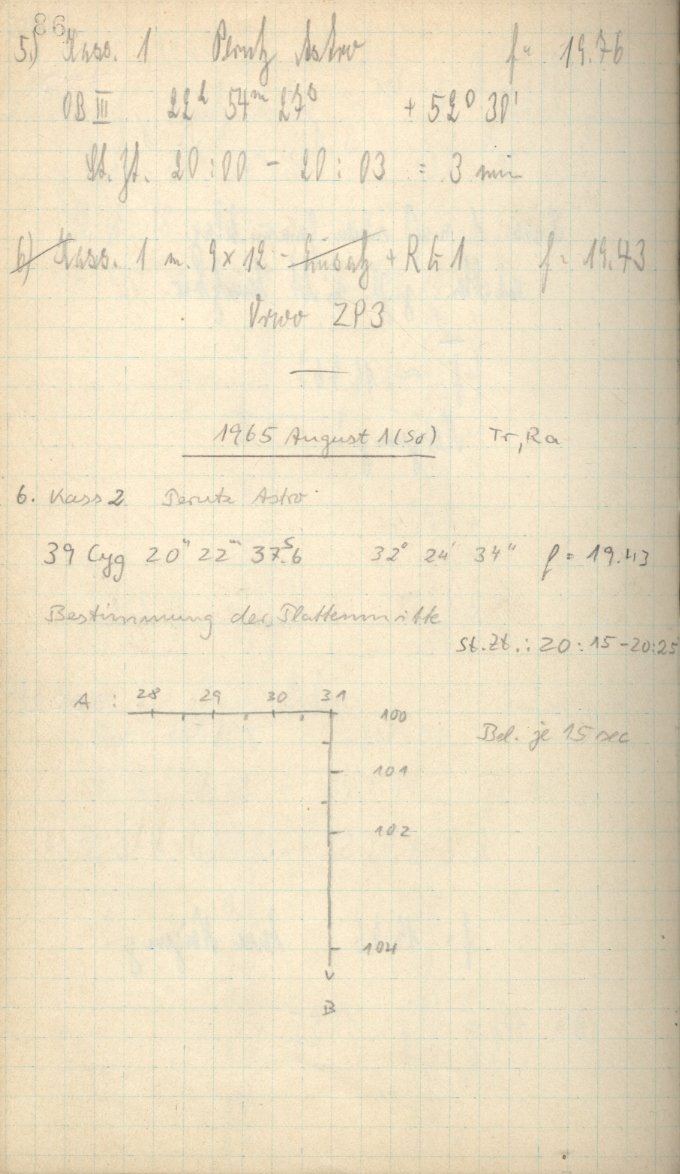 86
5.) Kass. 1 Perutz Astro f = 19.76
OB III 22h 54m 27s + 52° 30'
St. Zt. 20:00 - 20:03 = 3 min
6) Kass. 1 m. 9x12 - Zusatz + RG 1 f = 19.43
ZP3
1965 August 1 (So) Tr, Ra
6. Kass 2 Perutz Astro
39 Cyg 20h 22m 37.s6 32° 24' 34" f = 19.43
Bestimmung der Plattenmitte
St. Zt.: 20:15 - 20:25
A : 28 29 30 31
100
Bel. je 15 sec
101
102
104
B